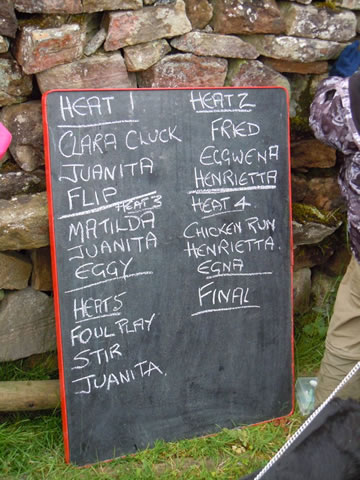 HEAT 1
CLARA CLUCK
JUANITA
FLIP
HEAT 3
MATILDA
JUANITA
EGGY
HEAT 5
FOUL PLAY
STIR
JUANITA.
HEAT 2
FRIED
EGGWENA
HENRIETTA
HEAT 4.
CHICKEN RUN
HENRIETTA.
EGNA
FINAL